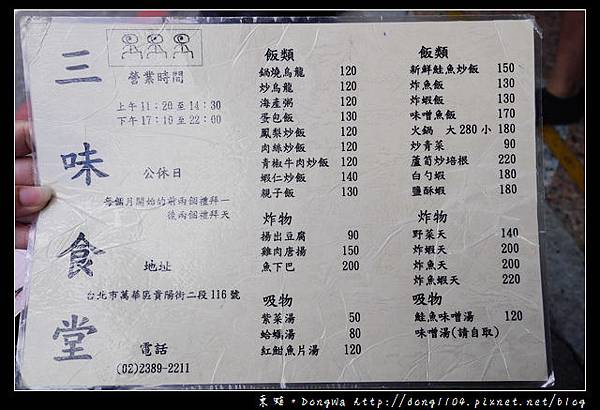 三味食堂
營業時間
上午11:20至14:30
下午17:10至22:00
公休日
每個月開始的前兩個禮拜一
後兩個禮拜天
地址
台北市萬華區貴陽街二段116號
電話
(02)2389-2211
飯類
鍋燒烏龍 120
炒烏龍 120
海產粥 120
蛋包飯 130
鳳梨炒飯 120
肉絲炒飯 120
青椒牛肉炒飯 120
蝦仁炒飯 140
親子飯 130
炸物
揚出豆腐 90
雞肉唐揚 150
魚下巴 200
吸物
紫菜湯 50
蛤蠣湯 80
紅魽魚片湯 120
飯類
新鮮鮭魚炒飯 150
炸魚飯 130
炸蝦飯 130
味噌魚飯 170
火鍋 大280小180
炒青菜 90
蘆筍炒培根 220
白勺蝦 180
鹽酥蝦 180
炸物
野菜天 140
炸蝦天 200
炸魚天 200
炸魚蝦天 220
吸物
鮭魚味噌湯 120
味噌湯(請自取)
DongWa http://dong1104.pixnet.net/blog